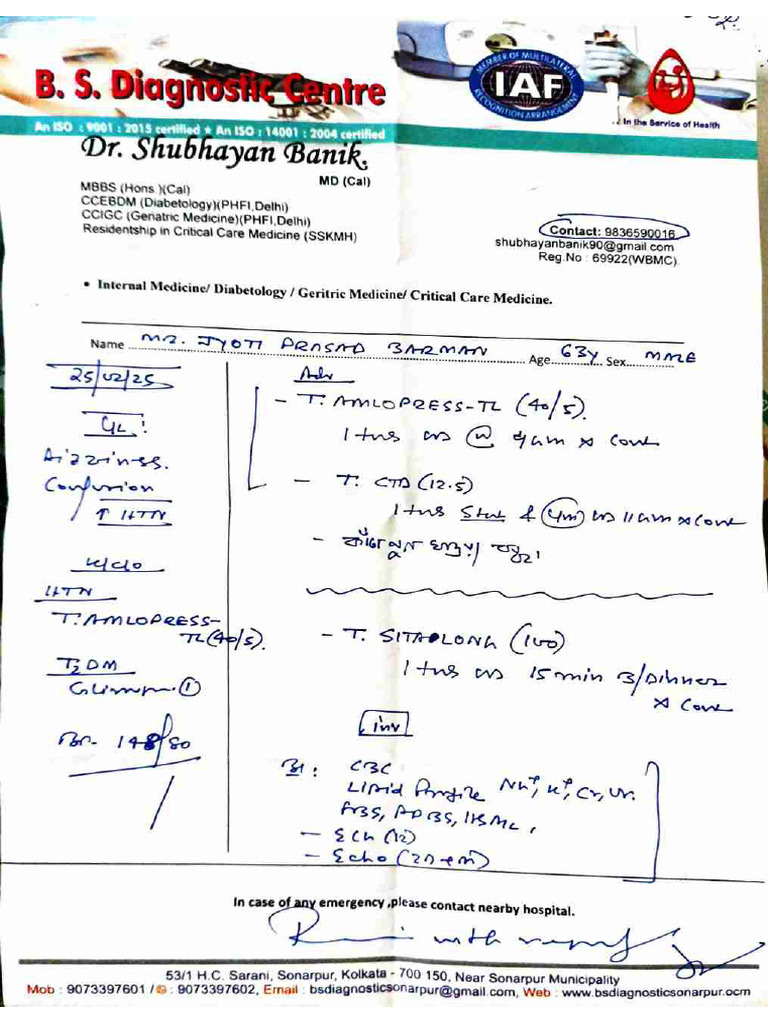 B. S. Diagnostic Centre
MEMBER OF MULTILATERAL
IAF
RECOGNITION ARRANGEMENT
In the Service of Health
An ISO : 9001 : 2015 certified ★ An ISO : 14001 : 2004 certified
Dr. Shubhayan Banik.
MD (Cal)
MBBS (Hons )(Cal)
CCEBDM (Diabetology)(PHFI,Delhi)
CCIGC (Geriatric Medicine)(PHFI,Delhi)
Residentship in Critical Care Medicine (SSKMH)
Contact: 9836590016
shubhayanbanik90@gmail.com
Reg.No : 69922(WBMC)
• Internal Medicine/ Diabetology / Geritric Medicine/ Critical Care Medicine.
Name MR. JYOTI PRASAD BARMAN Age 63y Sex MALE
25/02/25
Dizziness.
Confusion
↑ HTN
HTN
T. AMLOPRESS-TL (40/5).
T2DM
BP- 148/80
Adv
- T. AMLOPRESS-TL (40/5).
1 tab @ 9am x Cont
- T. CTD (12.5)
1 tab Stat & 11am x Cont
- T. (100)
1 tab 15 min B/Dinner
x Cont
inv
CBC
Lipid Profile Na+, K+, Cr, Ur.
FBS, PPBS,
- ECG (12)
- Echo (2D+M)
In case of any emergency ,please contact nearby hospital.
53/1 H.C. Sarani, Sonarpur, Kolkata - 700 150, Near Sonarpur Municipality
Mob : 9073397601 / : 9073397602, Email : bsdiagnosticsonarpur@gmail.com, Web : www.bsdiagnosticsonarpur.ocm